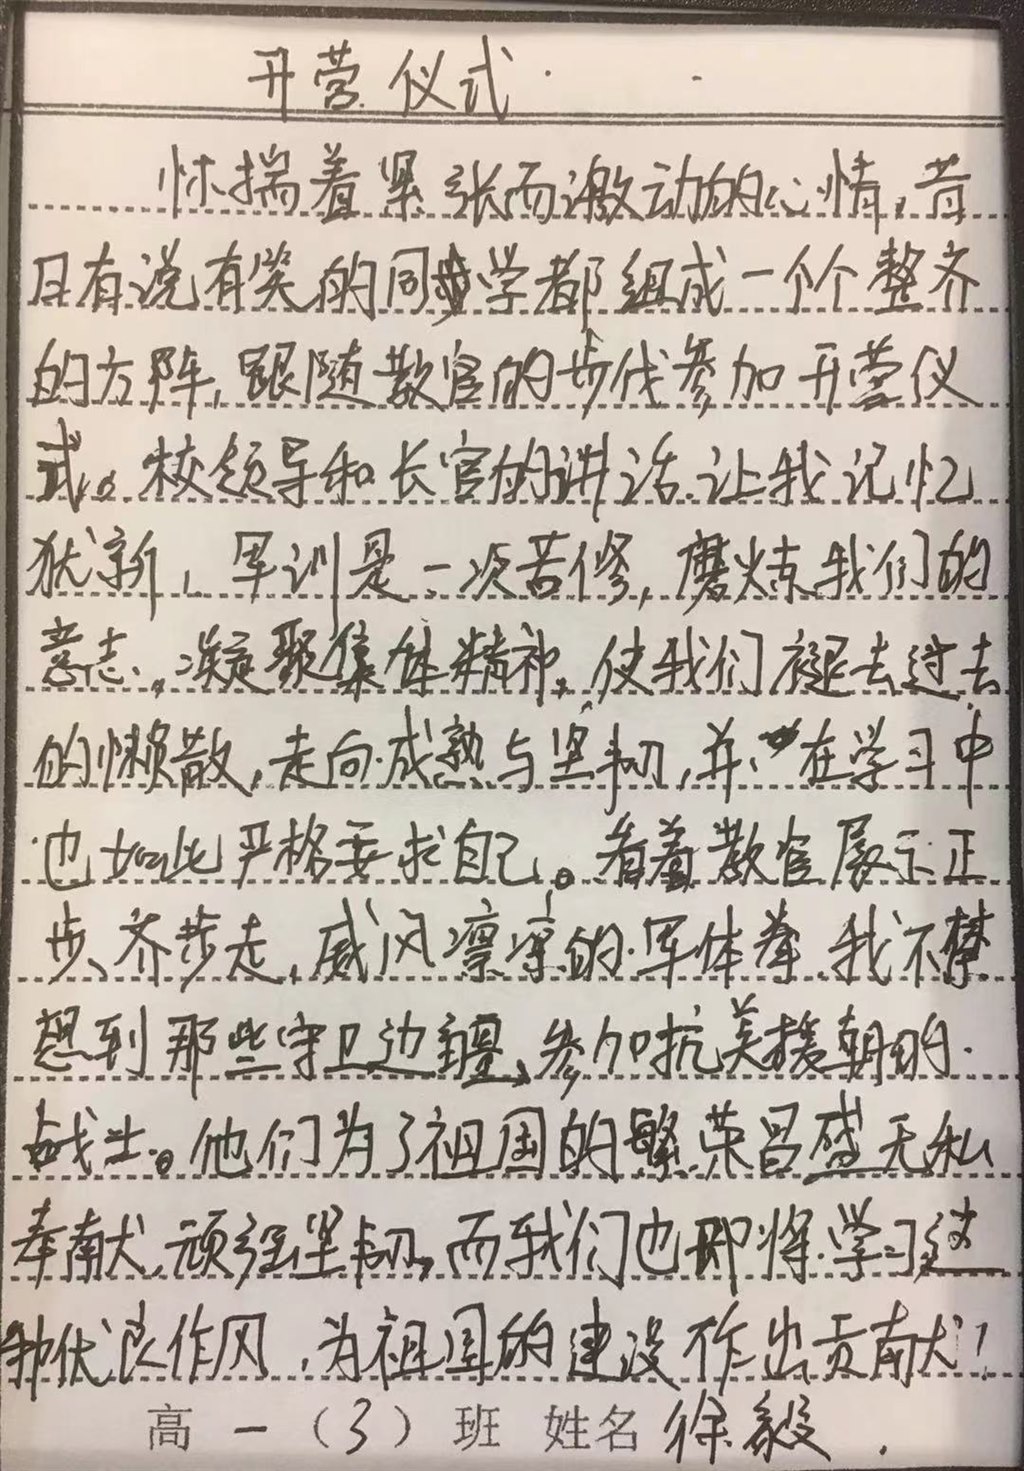 开营仪式
怀揣着紧张而激动的心情，昔
日有说有笑的同学都组成一个个整齐
的方阵，跟随教官的步伐参加开营仪
式。校领导和长官的讲话，让我记忆
犹新，军训是一次苦修，磨炼我们的
意志，凝聚集体精神，使我们褪去过去
的懒散，走向成熟与坚韧，并在学习中
也如此严格要求自己。看着教官展示正
步、齐步走，威风凛凛的军体拳，我不禁
想到那些守卫边疆、参加抗美援朝的
战士。他们为了祖国的繁荣昌盛无私
奉献，顽强坚韧，而我们也即将学习这
种优良作风，为祖国的建设作出贡献！
高一（3）班 姓名 徐毅